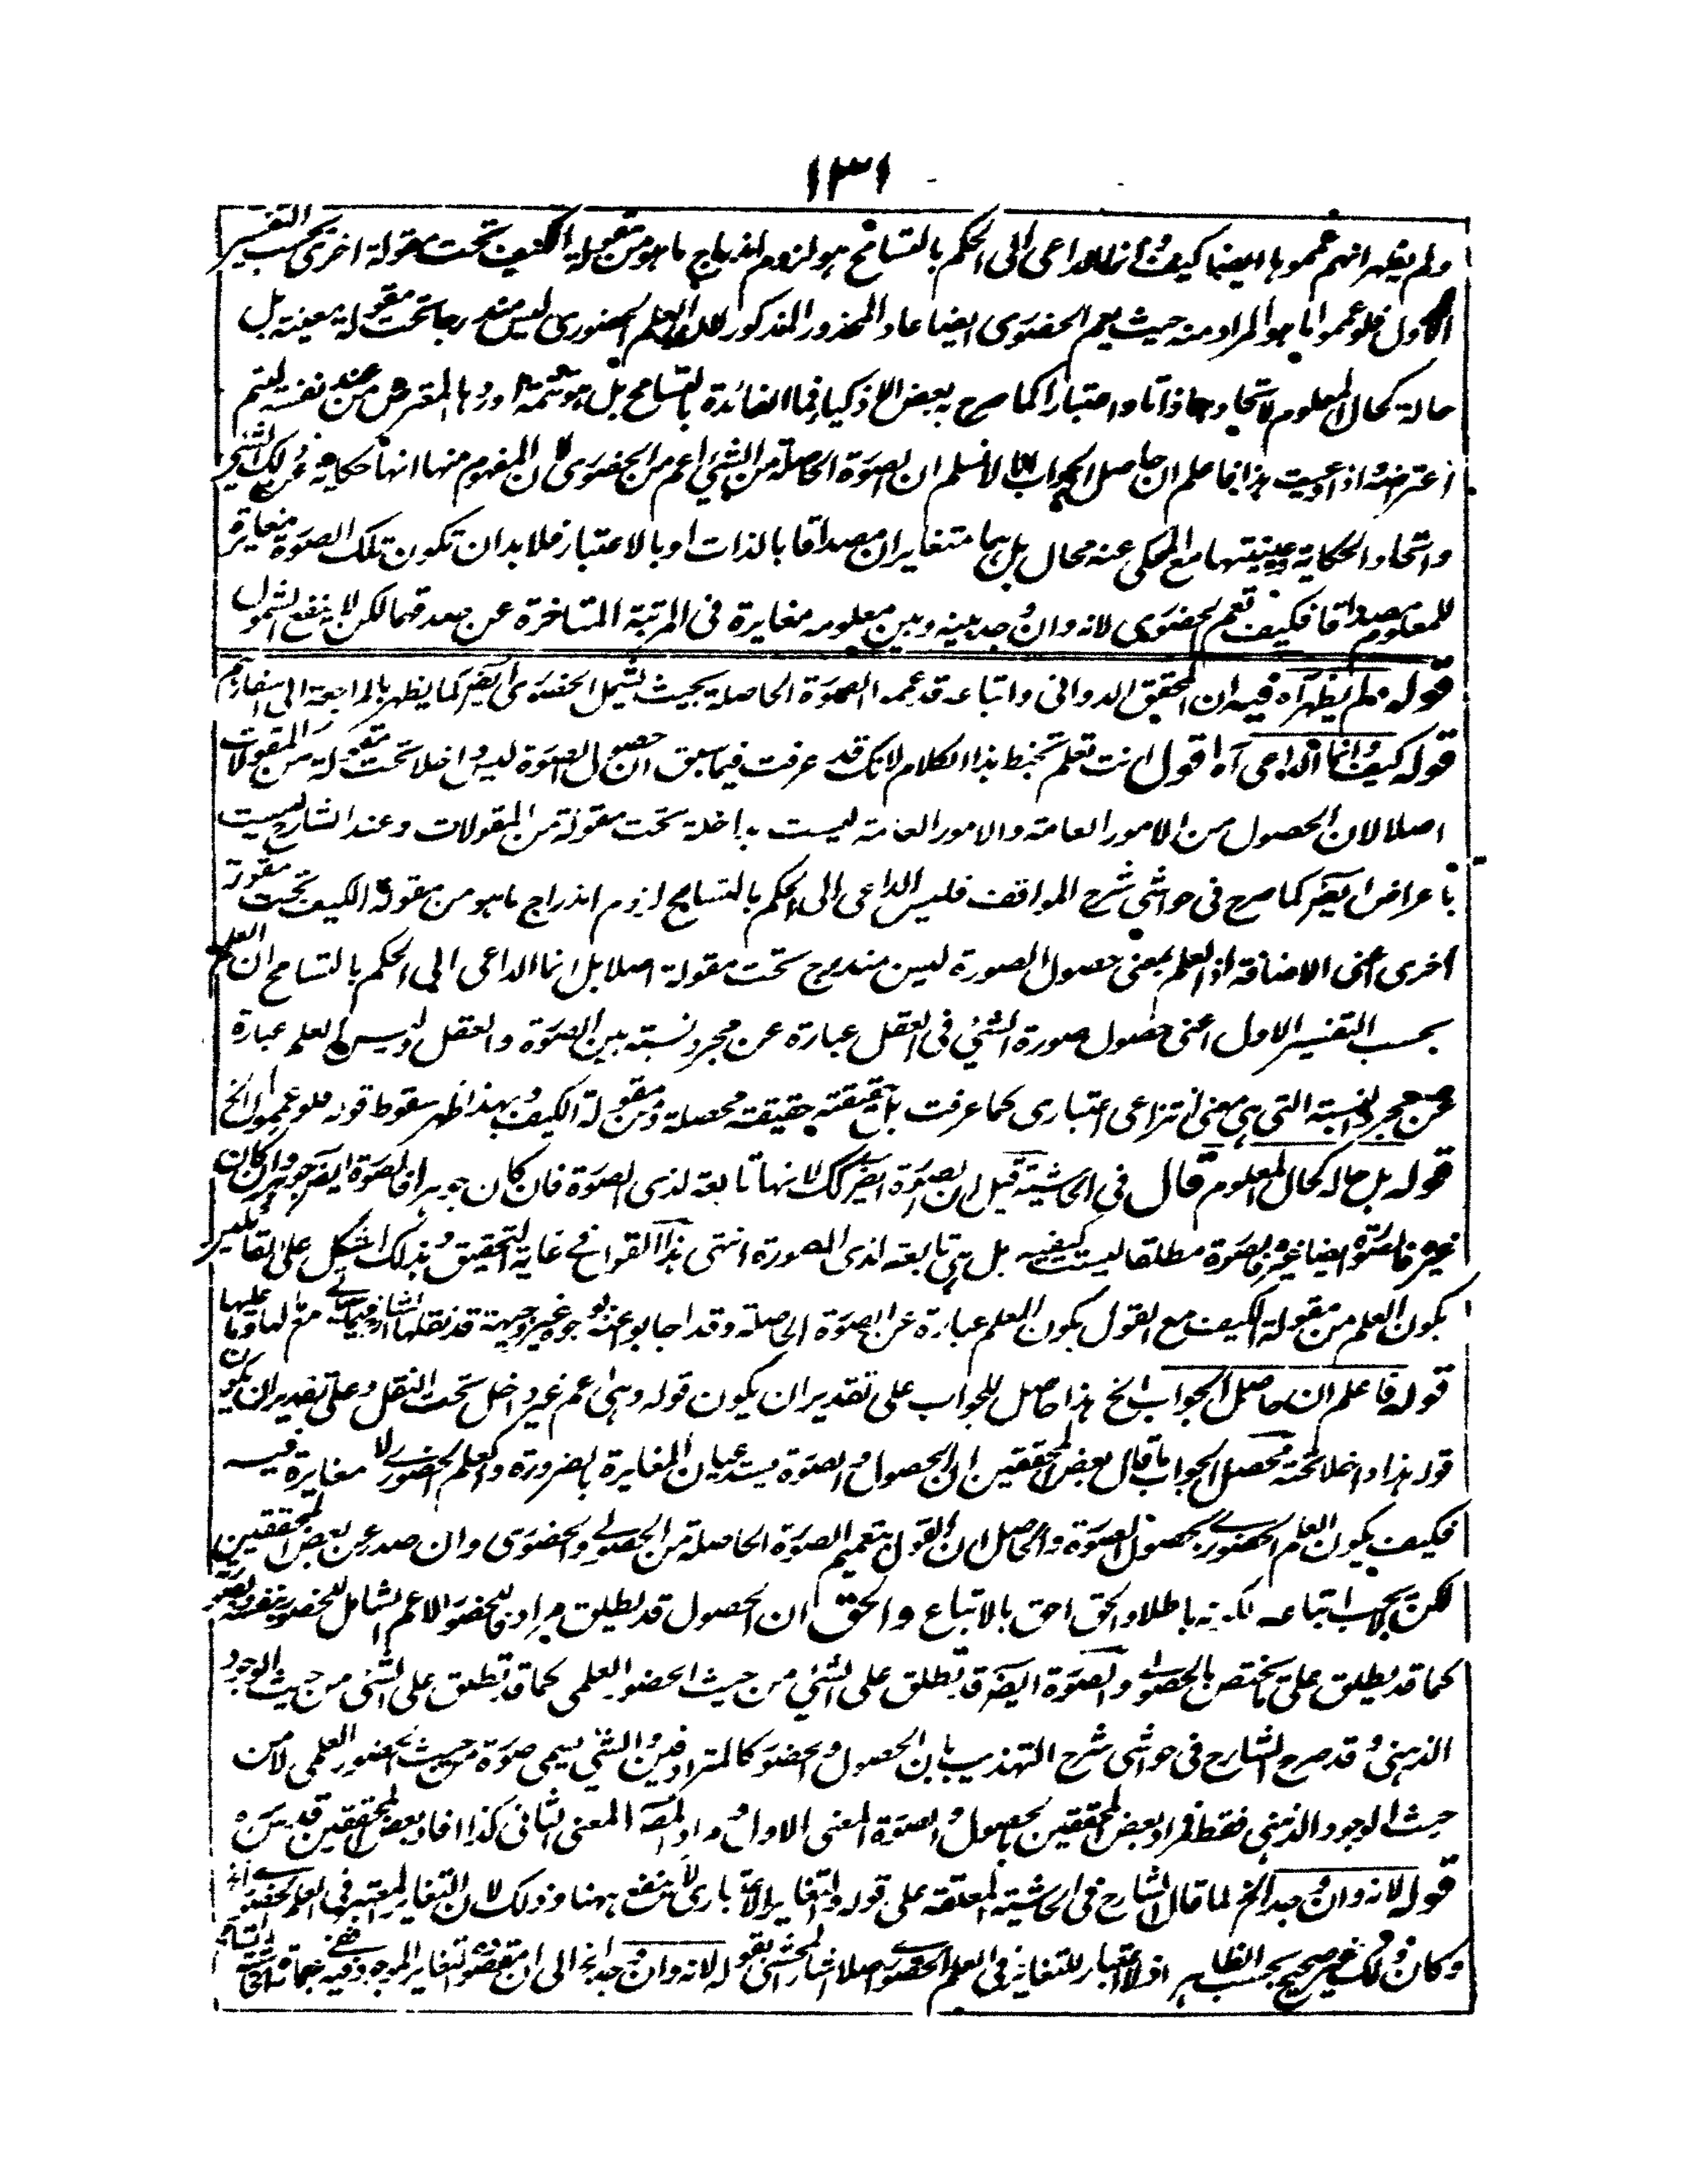 ١٣١
ولم يظهر انهم عمموها ايضا كيف وانما الداعى الى الحكم بالتسامح هو لزوم اندراج ما هو من مقولة الكيف تحت مقولة اخرى بحسب التفسير
الاول فلو عمموا ما هو المراد منه حيث يعم الحضورى ايضا عاد المحذور المذكور لان العلم الحضورى ليس مندرجا تحت مقولة معينة بل
حاله كحال المعلوم لاتحادهما ذاتا واعتبارا كما صرح به بعض الاذكياء فما الفائدة بالتسامح بل هو تتمة اوردها المعترض من عند نفسه ليتم
اعتراضه اذا وعيت هذا فاعلم ان حاصل الجواب انا لا نسلم ان الصورة الحاصلة من الشئ اعم من الحضورى لان المفهوم منها انها حكاية عن ذلك الشئ
واتحاد الحكاية وعينيتها مع المحكى عنه محال بل هما متغايران مصداقا بالذات او بالاعتبار فلا بد ان تكون تلك الصورة مغايرة
للمعلوم مصداقا فكيف تعم الحضورى لانه وان وجد بينه وبين معلومه مغايرة فى المرتبة المتاخرة عن صدقهما لكن لا ينفع الشمول
قوله ولم يظهر آه فيه ان المحقق الدوانى واتباعه قد عمموا الصورة الحاصلة بحيث تشمل الحضورى ايضا كما يظهر بالمراجعة الى اسفارهم
قوله كيف وانما الداعى آه اقول انت تعلم تخبط هذا الكلام لانك قد عرفت فيما سبق ان حصول الصورة ليس داخلا تحت مقولة من المقولات
اصلا لان الحصول من الامور العامة والامور العامة ليست بداخلة تحت مقولة من المقولات وعند الشارح ليست
باعراض ايضا كما صرح فى حواشى شرح المواقف فليس الداعى الى الحكم بالتسامح لزوم اندراج ما هو من مقولة الكيف تحت مقولة
اخرى اعنى الاضافة اذ العلم بمعنى حصول الصورة ليس مندرج تحت مقولة اصلا بل انما الداعى الى الحكم بالتسامح ان العلم
بحسب التفسير الاول اعنى حصول صورة الشئ فى العقل عبارة عن مجرد نسبة بين الصورة والعقل وليس العلم عبارة
عن مجرد النسبة التى هى معنى انتزاعى اعتبارى كما عرفت بل حقيقته حقيقة محصلة ومن مقولة الكيف وبهذا ظهر سقوط قوله فلو عمموا الخ
قوله بل حاله كحال المعلوم قال فى الحاشية قيل ان الصورة ايضا كك لانها تابعة لذى الصورة فان كان جوهرا فالصورة ايضا جوهر وان كان
غيره فالصورة ايضا غيره فالصورة مطلقا ليست كيفية بل هى تابعة لذى الصورة انتهى هذا القول فى غاية التحقيق وبذلك اشكل على القائلين
بكون العلم من مقولة الكيف مع القول بكون العلم عبارة عن الصورة الحاصلة وقد اجابوا عنه بوجوه غير وجيهة قد نقلها الشارح فيما سياتى مع ما لها وما عليها
قوله فاعلم ان حاصل الجواب الخ هذا حاصل للجواب على تقدير ان يكون قوله وهى اعم غير داخل تحت النقل وعلى تقدير ان يكون
قوله هذا داخلا تحته محصل الجواب ما قال بعض المحققين ان الحصول والصورة يستدعيان المغايرة بالضرورة والعلم الحضورى لا مغايرة فيه
فكيف يكون العلم الحضورى بحصول الصورة والحاصل ان القول بتعميم الصورة الحاصلة من الحصولى والحضورى وان صدر عن بعض المحققين
لكن لا يجب اتباعه لكونه باطلا والحق احق بالاتباع والحق ان الحصول قد يطلق ويراد به الحضور الاعم الشامل للحضور بنفسه وبصورته
كما قد يطلق على ما يختص بالحصولى والصورة ايضا قد تطلق على الشئ من حيث الحضور العلمى كما قد تطلق على الشئ من حيث الوجود
الذهنى وقد صرح الشارح فى حواشى شرح التهذيب بان الحصول والحضور كالمترادفين والشئ يسمى صورة من حيث الحضور العلمى لا من
حيث الوجود الذهنى فقط فمراد بعض المحققين بالحصول والصورة المعنى الاول ومراد المص المعنى الثانى كذا افاد بعض المحققين قدس سره
قوله لانه وان وجد الخ لما قال الشارح فى الحاشية المعلقة على قوله والتغاير الاعتبارى لا ينفع ههنا وذلك لان التغاير المعتبر فى العلم الحضورى
وكان ذلك غير صحيح بحسب الظاهر اذ لا اعتبار للتغاير فى العلم الحضورى اصلا اشار المحشى بقوله لانه وان وجد الخ الى ان مقصوده